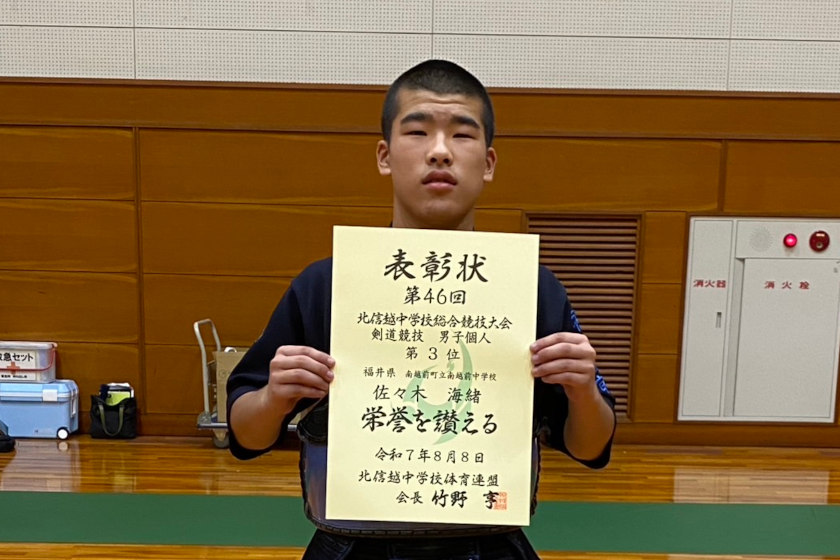 表彰状
第46回
北信越中学校総合競技大会
剣道競技 男子個人
第3位
福井県 南越前町立南越前中学校
佐々木 海緒
栄誉を讃える
令和7年8月8日
北信越中学校体育連盟
会長 竹野 亨
救急セット
消火器
消火栓